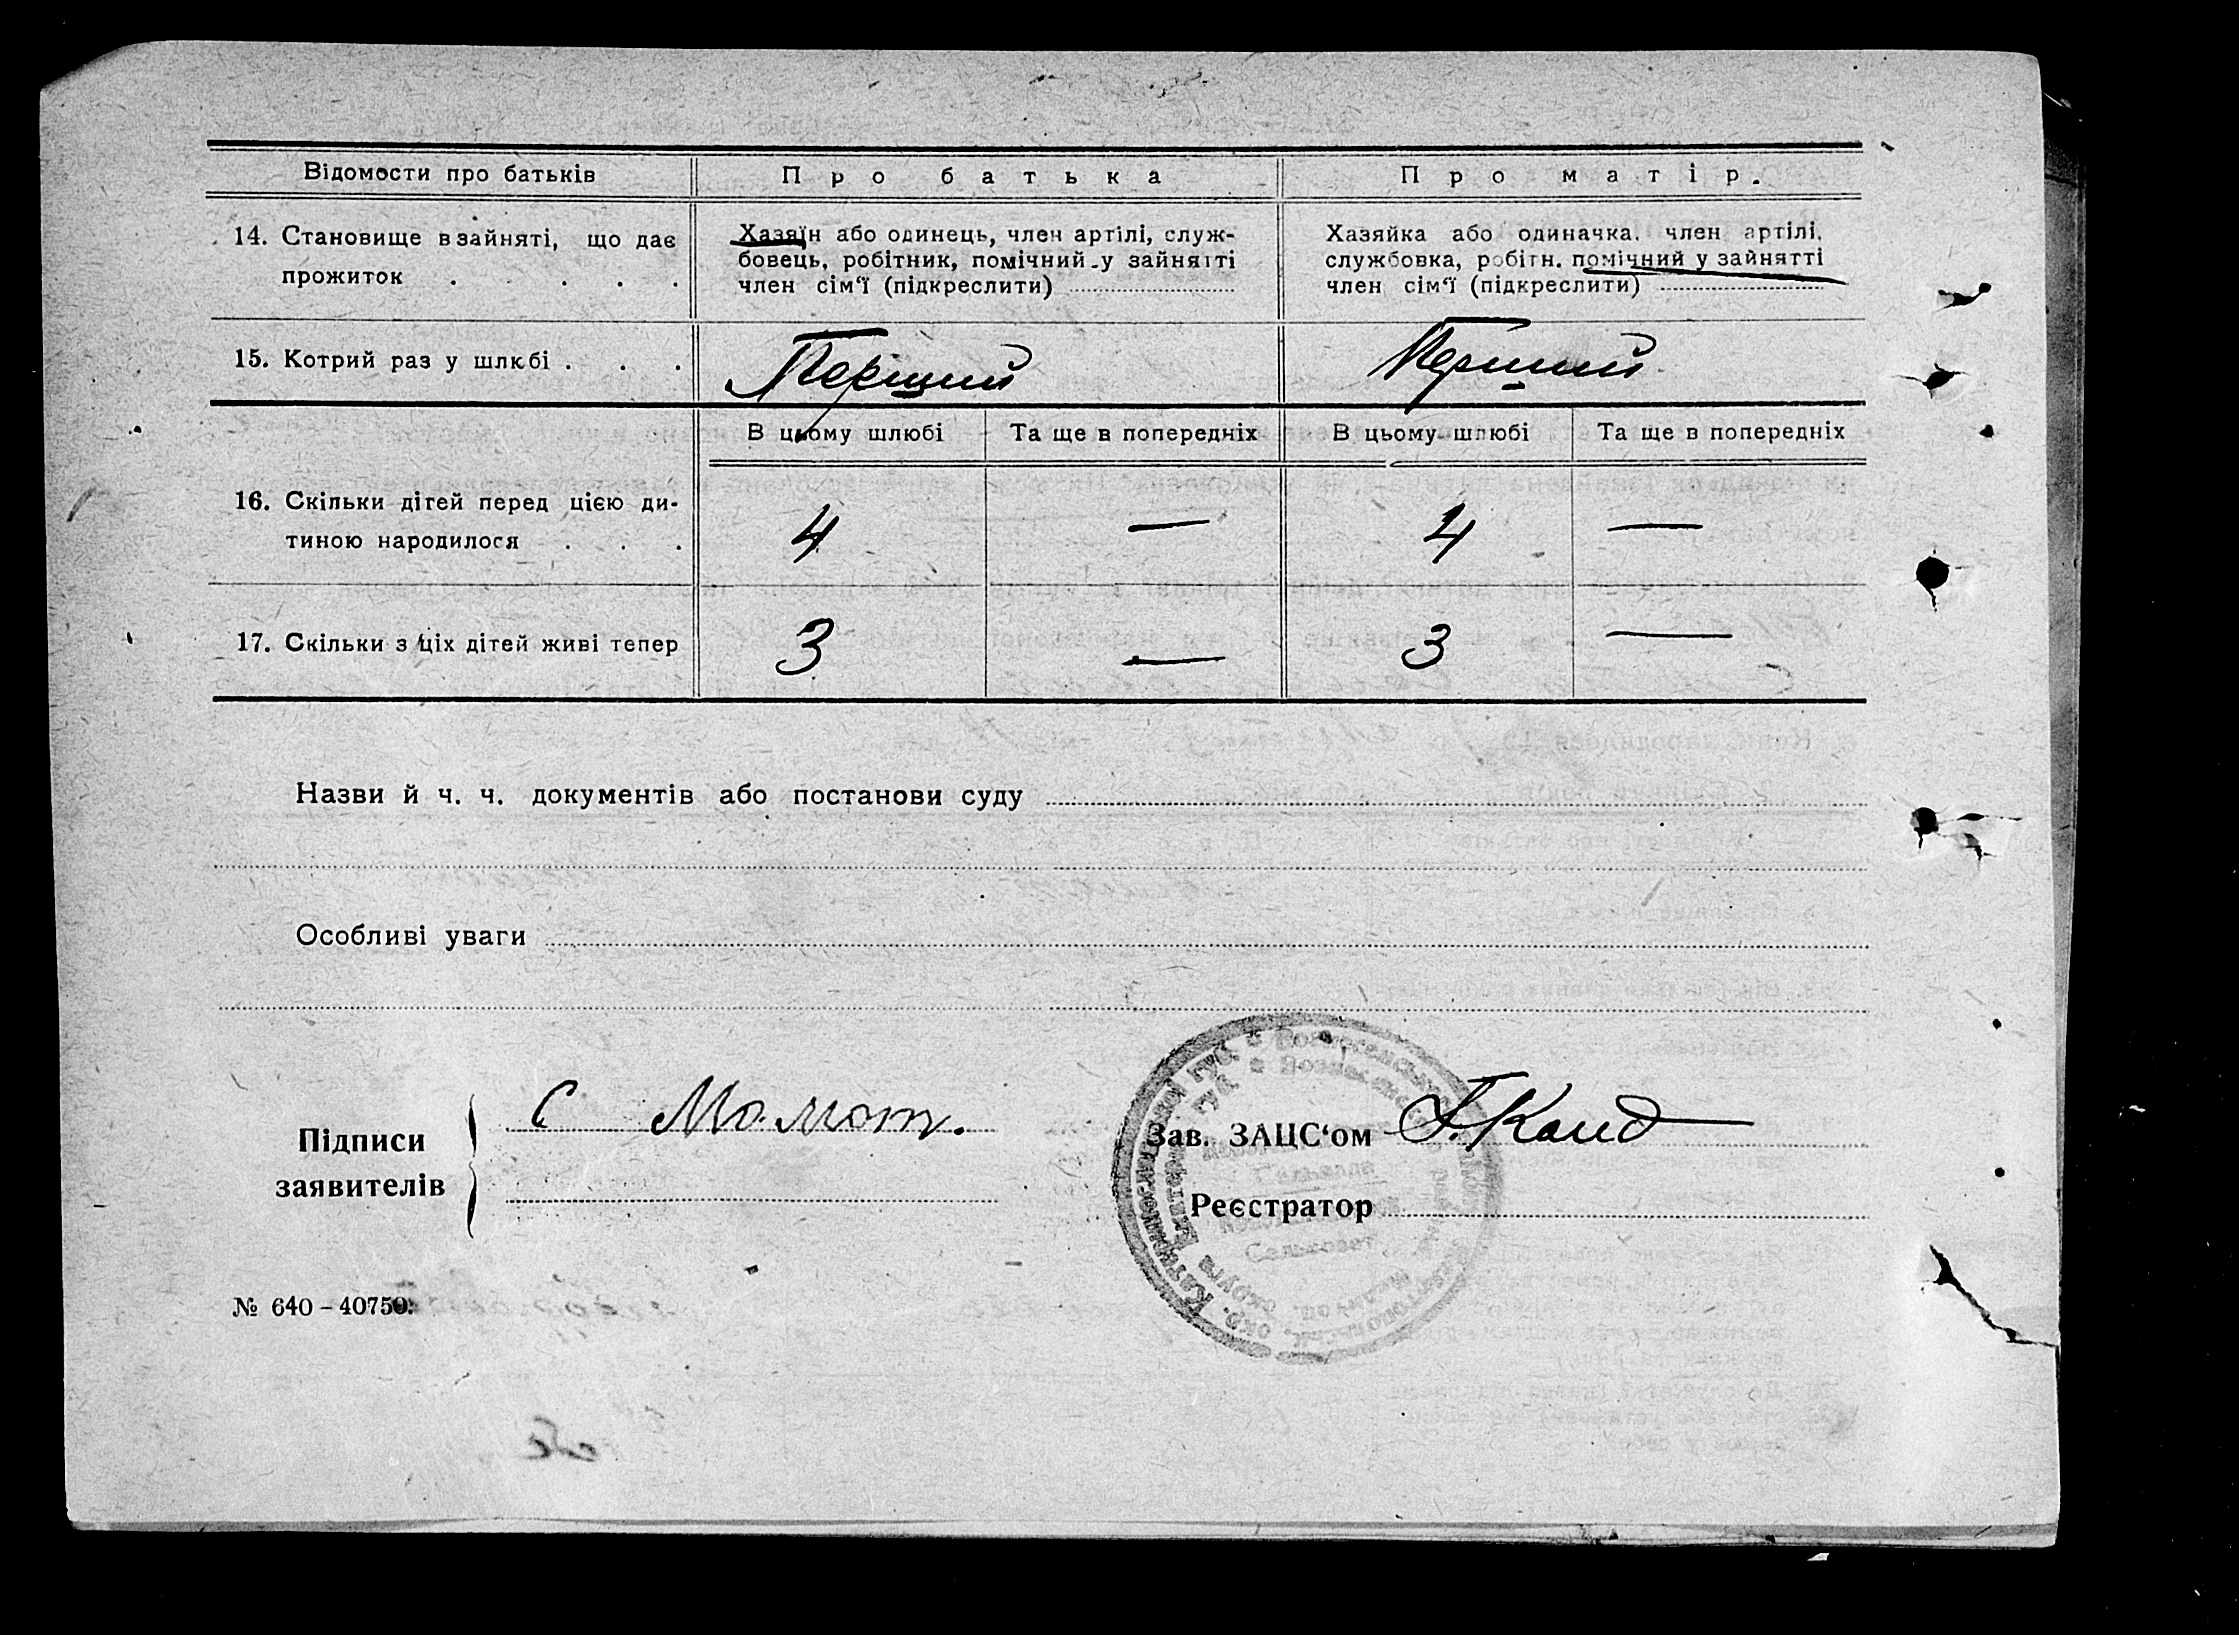 Відомости про батьків Про батька Про матір.
14. Становище в зайняті, що дає прожиток . . . . .
Хазяїн або одинець, член артілі, служ-
бовець, робітник, помічний у зайнятті
член сім'ї (підкреслити)
Хазяйка або одиначка, член артілі,
службовка, робітн. помічний у зайнятті
член сім'ї (підкреслити)
15. Котрий раз у шлюбі . . . Перший Перший
В цьому шлюбі Та ще в попередніх В цьому шлюбі Та ще в попередніх
16. Скільки дітей перед цією ди-
тиною народилося . . . 4 — 4 —
17. Скільки з ціх дітей живі тепер 3 — 3 —
Назви й ч. ч. документів або постанови суду
Особливі уваги
Підписи
заявителів
С Мамот.
Зав. ЗАЦС‘ом
Реєстратор
Сельсовет
№ 640 – 40750.